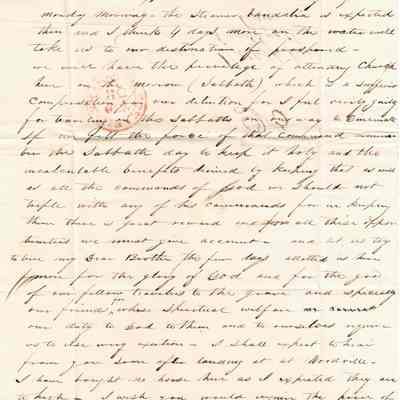 monday morning the Steamer Vandalia is expected
then and I think 4 days more on the water will
take us to our destination if prospered —
we will have the privilege of attending Church
here on the morrow (Sabbath) which is a
Compensation for our detention for I feel
for traveling on the Sabbath on way to
If we felt the force of that command remem
ber the Sabbath day to keep it holy and the
incalculable benefits derived by keeping that as well
as all the commands of God we should not
trifle with any of his commands for in keeping
them there is great reward and for all these oppor
tunities we must give account — and let us try
to live my Dear Brother the few days allotted us here
for the glory of God and for the good
of our fellow travelers to the grave and specially
our friends, for whose Spiritual welfare
our duty to God to them and to ourselves require
us to use every exertion — I shall expect to hear
from you soon after landing at Woodville —
I have bought no house here as I expected they are
to high — I wish you would the price of